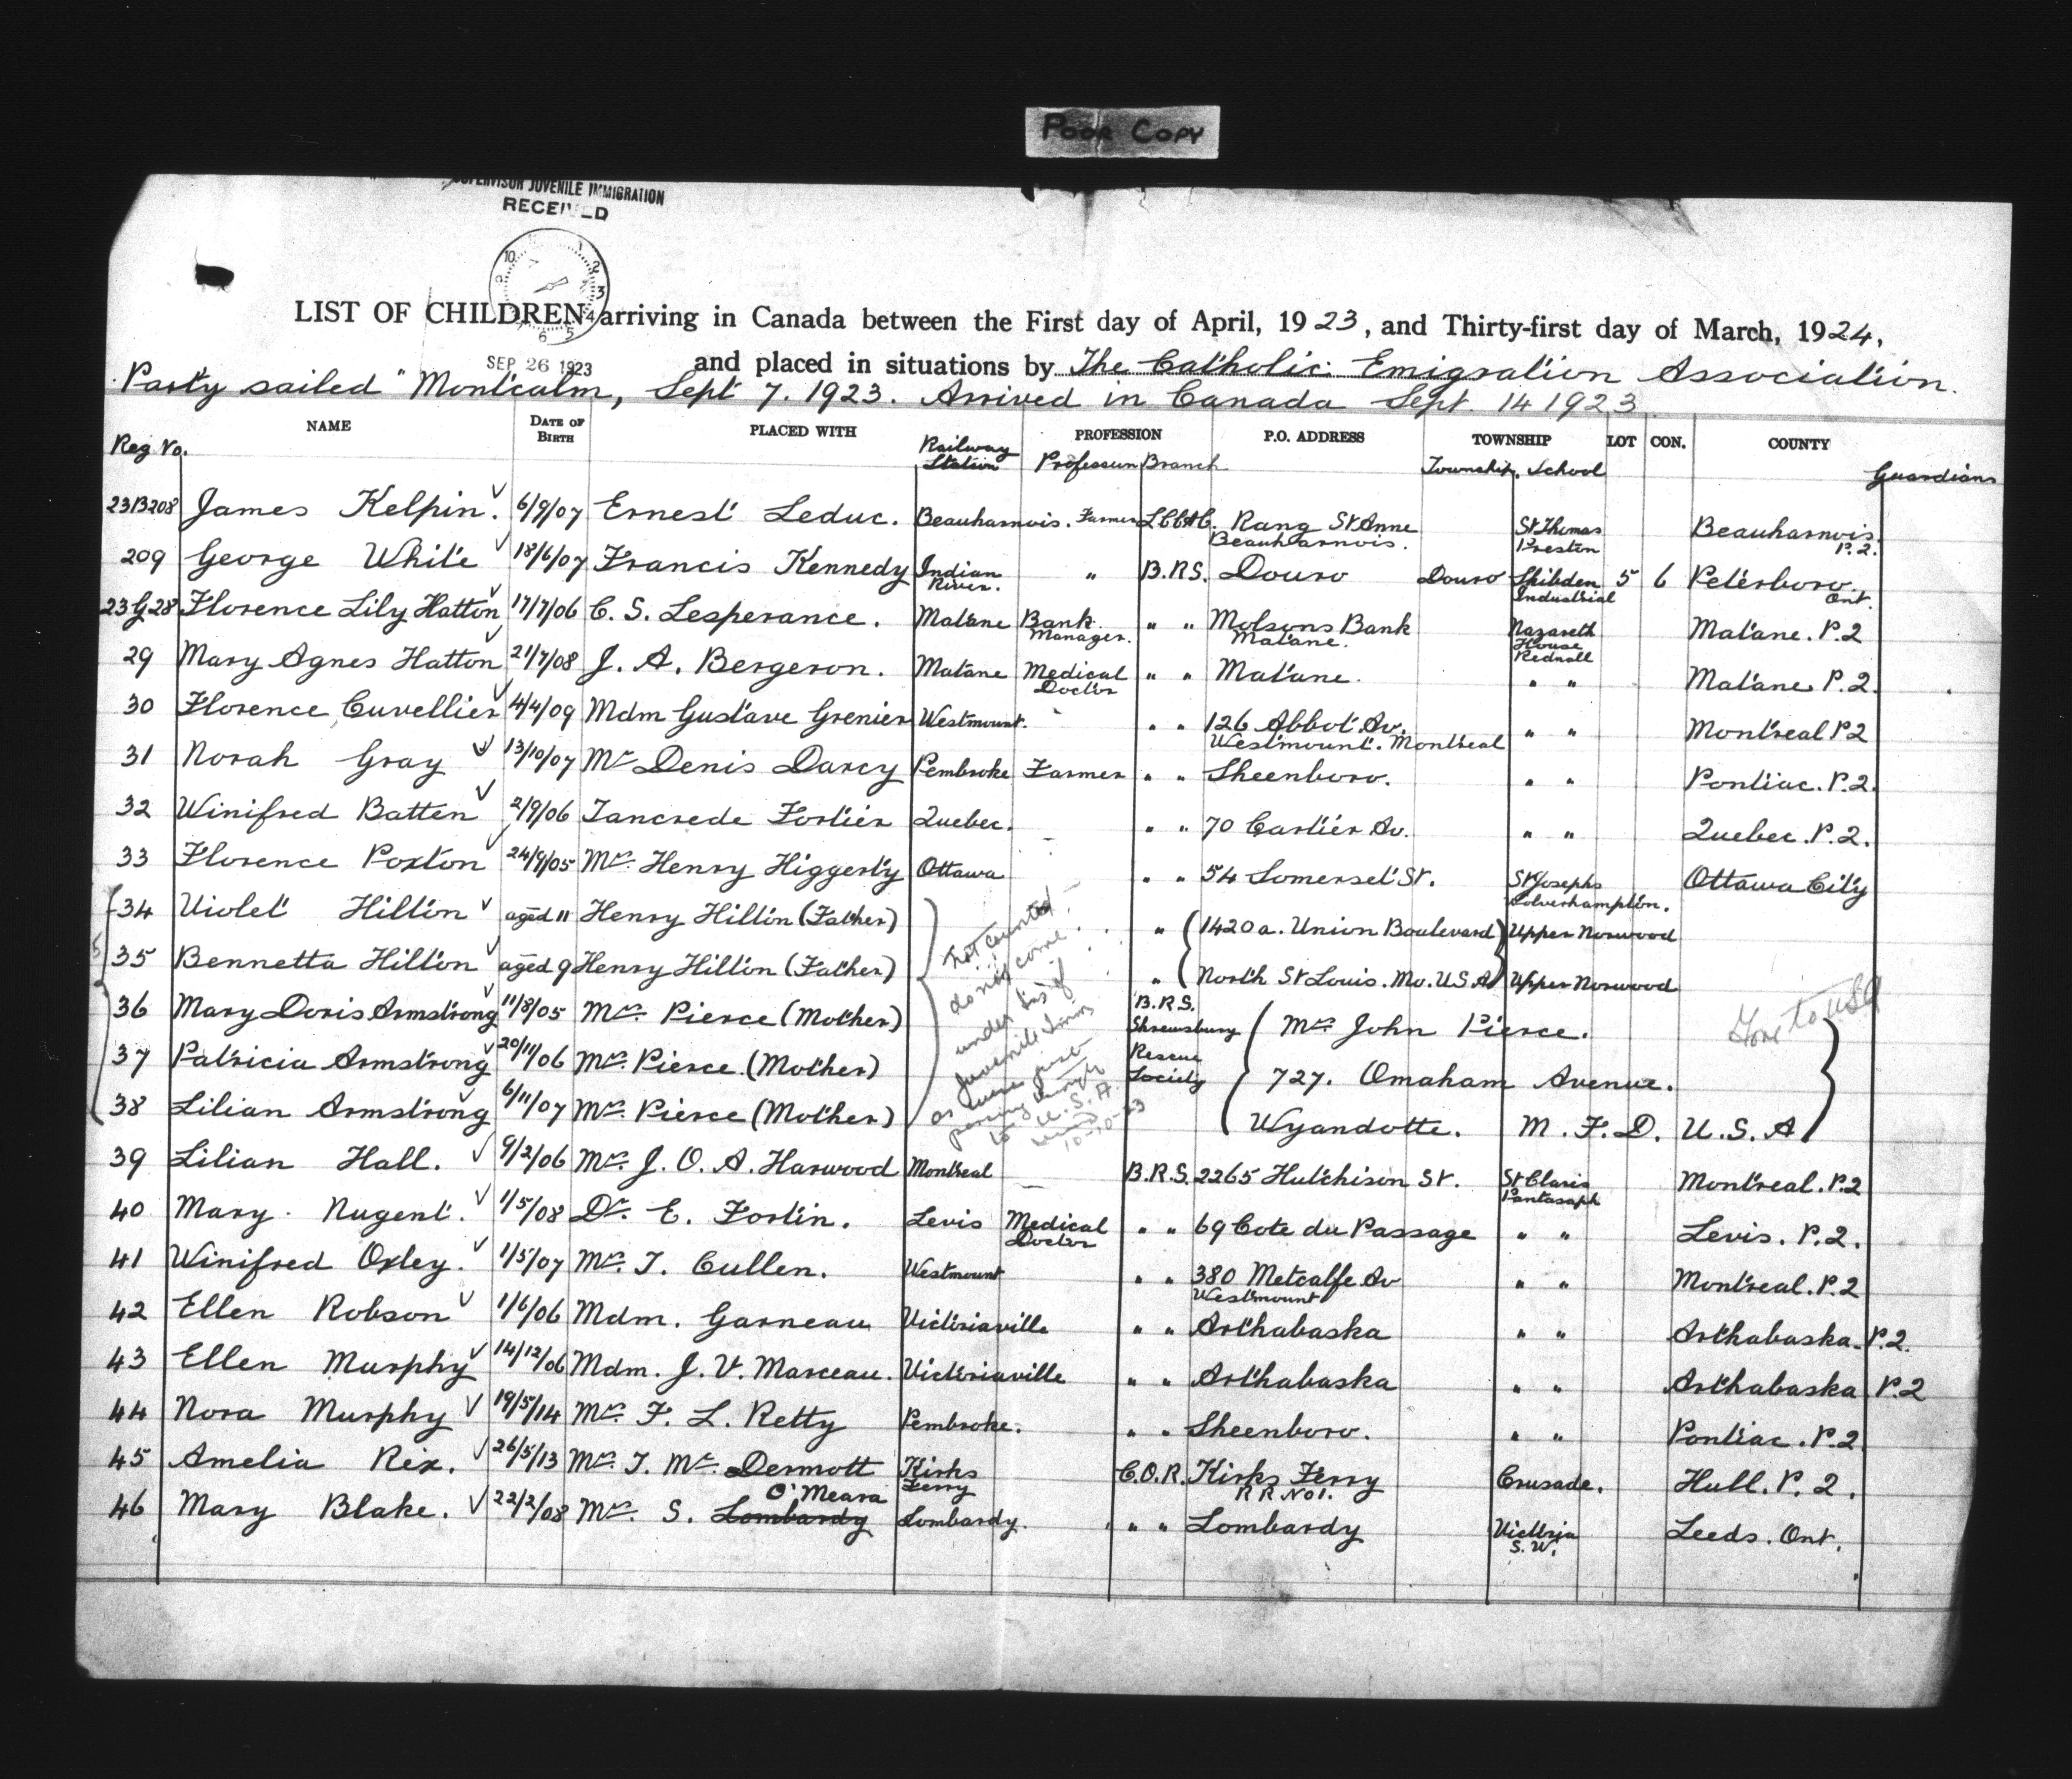 POOR COPY
SUPERVISOR JUVENILE IMMIGRATION
RECEIVED
LIST OF CHILDREN arriving in Canada between the First day of April, 1923, and Thirty-first day of March, 1924,
SEP 26 1923
and placed in situations by The Catholic Emigration Association.
Party sailed "Montcalm, Sept 7. 1923. Arrived in Canada Sept. 14 1923
Reg No. NAME DATE OF BIRTH PLACED WITH Railway Station PROFESSION Profession Branch P.O. ADDRESS TOWNSHIP Township School LOT CON. COUNTY Guardians
23B208 James Kelpin. 6/9/07 Ernest Leduc. Beauharnois. Farmer Rang St Anne Beauharnois. St Thomas Preston Beauharnois. P.2.
209 George White 18/6/07 Francis Kennedy Indian River. " B.R.S. Douro Douro Shibden Industrial 5 6 Peterboro. Ont.
23G28 Florence Lily Hatton 17/7/06 C. S. Lesperance. Matane Bank Manager. " " Molsons Bank Matane. Nazareth House Rednall Matane. P.2
29 Mary Agnes Hatton 21/7/08 J. A. Bergeron. Matane Medical Doctor " " Matane. " " Matane. P.2.
30 Florence Cuvellier 4/4/09 Mdm Gustave Grenier Westmount. " " 126 Abbot Av. Westmount. Montreal " " Montreal P.2
31 Norah Gray 13/10/07 Mr Denis Darcy Pembroke Farmer " " Sheenboro. " " Pontiac. P.2.
32 Winifred Batten 2/9/06 Tancrede Fortier Quebec. - " " 70 Cartier Av. " " Quebec. P.2.
33 Florence Poxton 24/9/05 Mrs. Henry Higgerty Ottawa - " " 54 Somerset St. St Josephs Wolverhampton. Ottawa City
34 Violet Hillin aged 11 Henry Hillin (Father) " (1420a. Union Boulevard) Upper Norwood
35 Bennetta Hillin aged 9 Henry Hillin (Father) " (North St Louis. Mo. U.S.A) Upper Norwood
36 Mary Doris Armstrong 11/8/05 Mrs. Pierce (Mother) B.R.S. Shrewsbury Mrs John Pierce.
37 Patricia Armstrong 20/11/06 Mrs. Pierce. (Mother) Rescue Society 727. Omaham Avenue.
38 Lilian Armstrong 6/11/07 Mrs. Pierce (Mother) Wyandotte. M. F. D. U.S.A
not counted
do not come
under
Juvenile Imm
as were
passing through
to U.S.A.
10-10-23
Gone to USA
39 Lilian Hall. 9/2/06 Mrs. J. O. A. Harwood Montreal — B.R.S. 2265 Hutchison St. St Claris Pantasaph Montreal. P.2
40 Mary Nugent. 1/5/08 Dr. E. Fortin. Levis Medical Doctor " " 69 Cote du Passage " " Levis. P.2.
41 Winifred Oxley. 1/5/07 Mrs. T. Cullen. Westmount " " 380 Metcalfe Av Westmount " " Montreal. P.2
42 Ellen Robson 1/6/06 Mdm. Garneau Victoriaville " " Arthabaska " " Arthabaska. P.2.
43 Ellen Murphy 14/12/06 Mdm. J. V. Marceau. Victoriaville " " Arthabaska " " Arthabaska P.2
44 Nora Murphy 19/5/14 Mrs. F. L. Retty Pembroke. " " Sheenboro. " " Pontiac. P.2
45 Amelia Rix. 26/5/13 Mrs. T. Mc. Dermott Kirks Ferry C.O.R. Kirks Ferry R R No 1. Crusade. Hull. P.2.
46 Mary Blake. 22/2/08 Mrs. S. O'Meara Lombardy Lombardy. " " Lombardy Victoria S.W. Leeds. Ont.